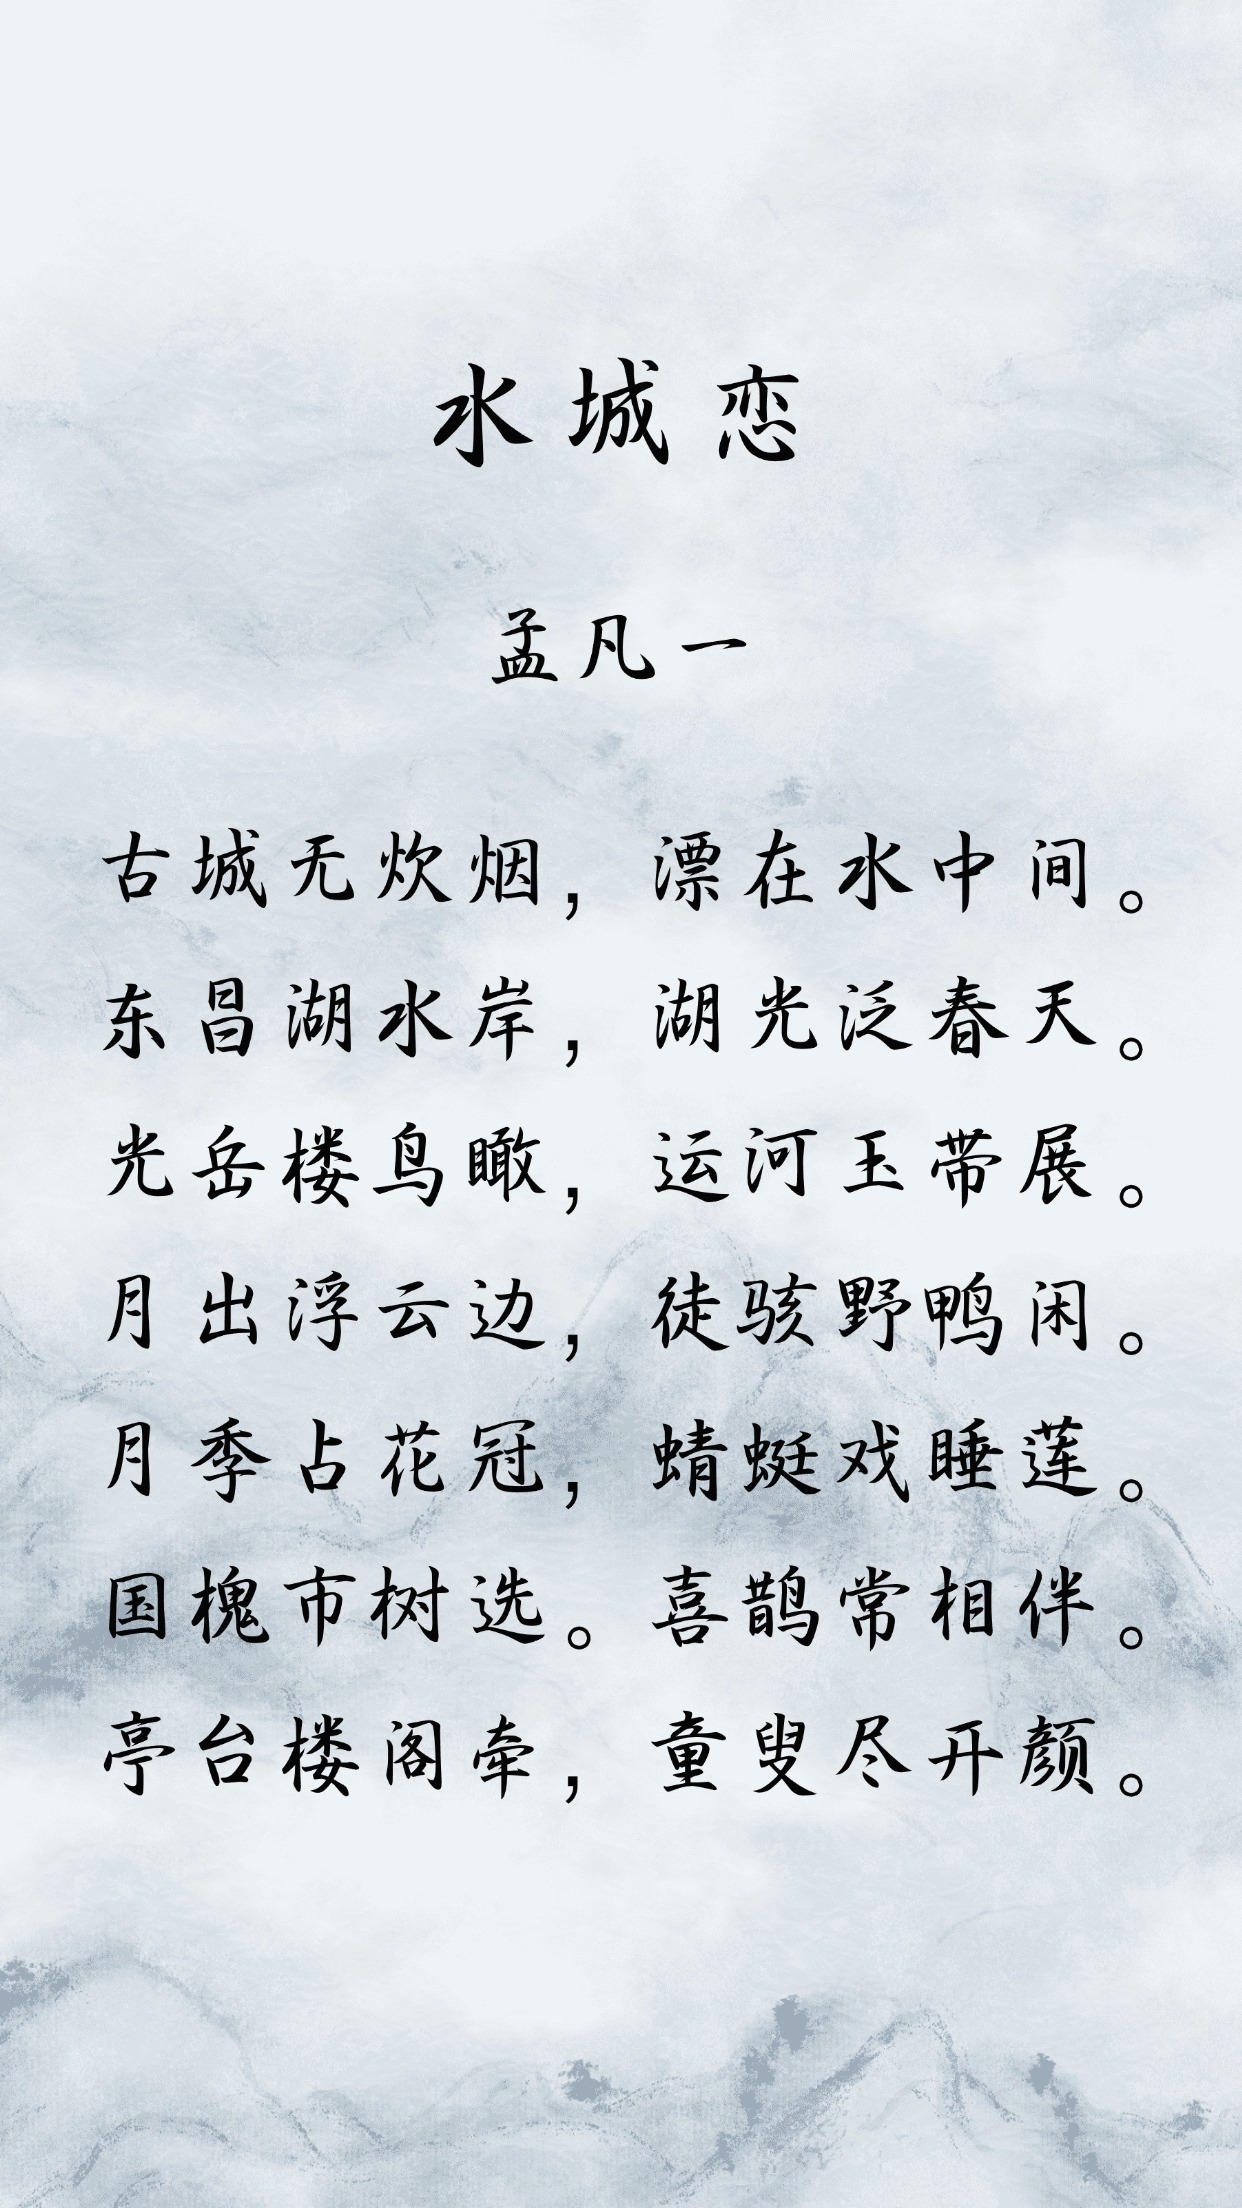 水城恋
孟凡一
古城无炊烟，漂在水中间。
东昌湖水岸，湖光泛春天。
光岳楼鸟瞰，运河玉带展。
月出浮云边，徒骇野鸭闲。
月季占花冠，蜻蜓戏睡莲。
国槐市树选。喜鹊常相伴。
亭台楼阁牵，童叟尽开颜。